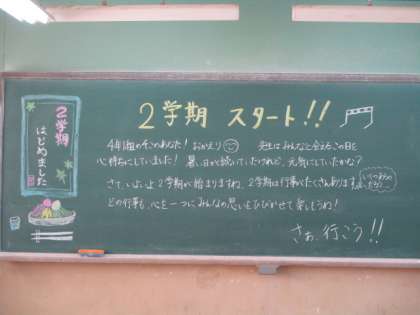 2学期
はじめました
2学期 スタート!!
4年1組のそこのあなた! おかえり 先生はみんなと会えるこの日を
心待ちにしていました! 暑い日が続いていたけれど、元気にしていたかな?
さて、いよいよ2学期が始まりますね。2学期は行事がたくさんあります。
どの行事も、心を一つにみんなの思いをひびかせて楽しもうね!
さぁ、行こう!!